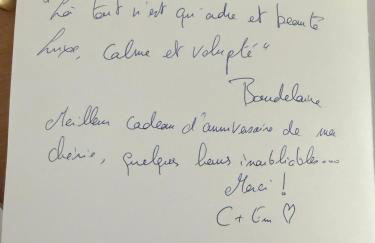 "Là tout n'est qu'ordre et beauté
Luxe, calme et volupté"
Baudelaire
Meilleur cadeau d'anniversaire de ma
chérie, quelques heures inoubliables...
Merci !
C + Em ♡